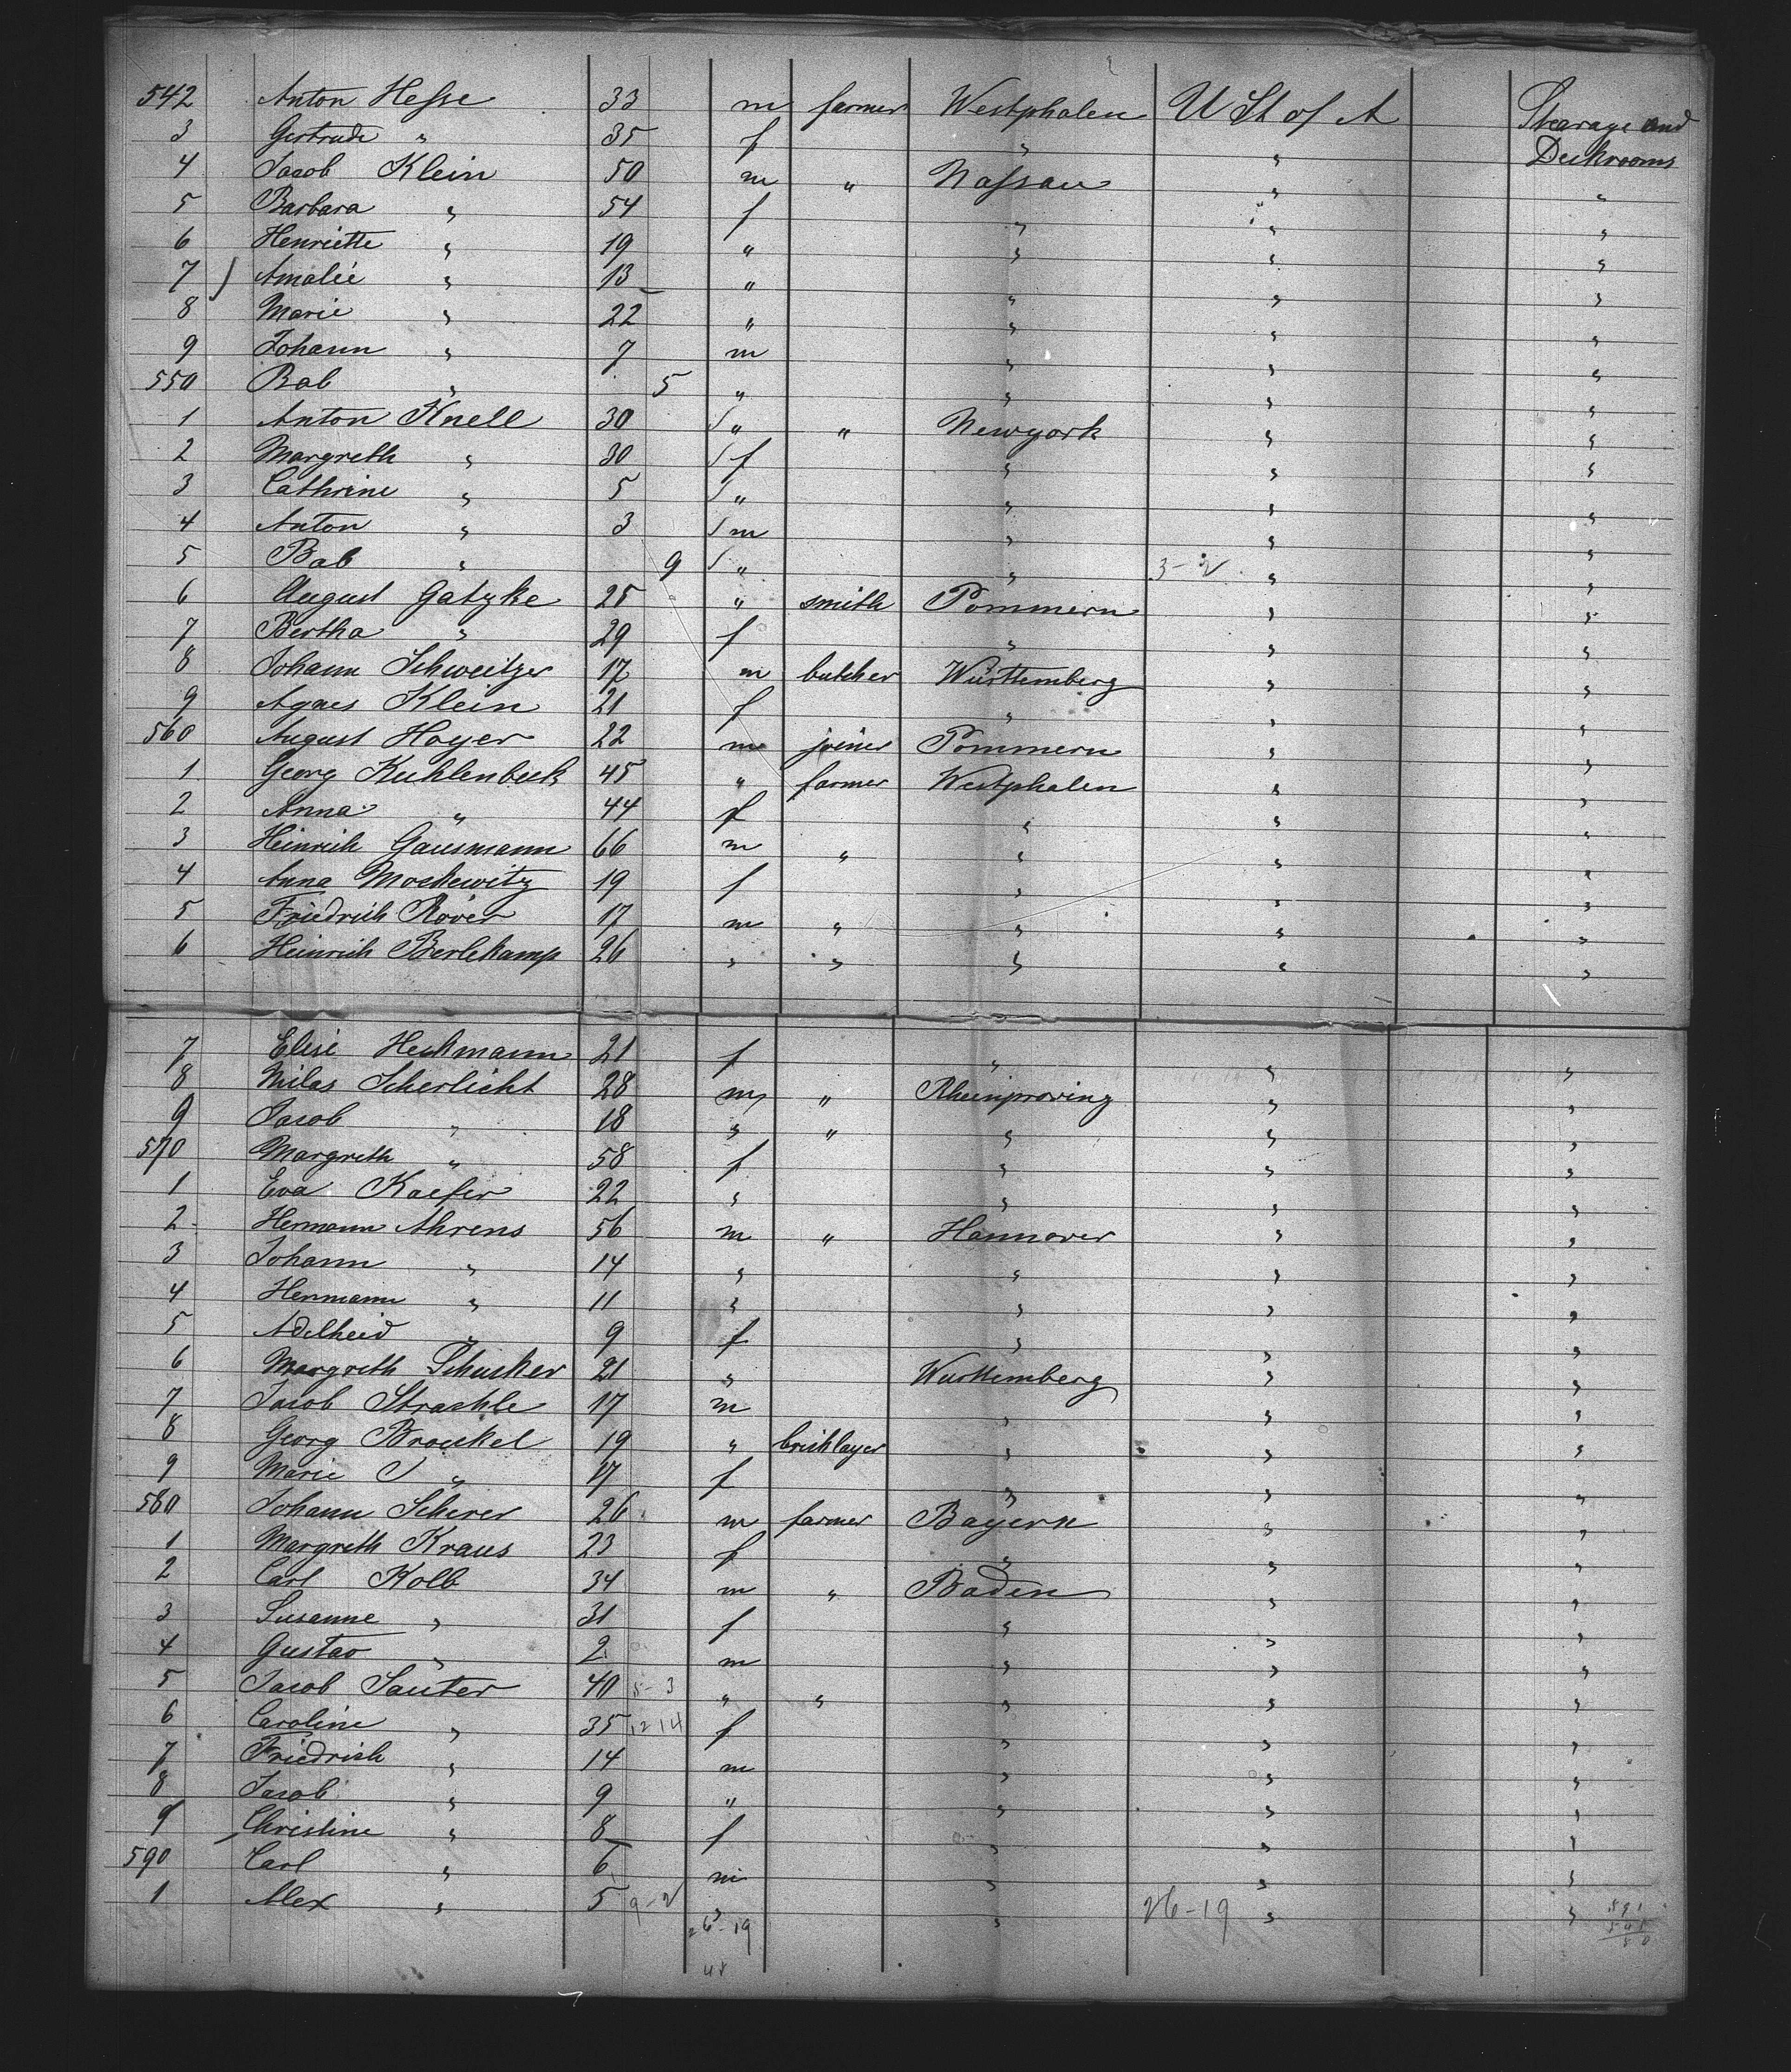 542 Anton Hesse 33 m farmer Westphalen U St of A Stearage and
3 Gertrude " 35 f " " Deckrooms
4 Jacob Klein 50 m " Nassau " "
5 Barbara " 54 f " " "
6 Henriette " 19 " " " "
7 Amalie " 13 " " " "
8 Marie " 22 " " " "
9 Johann " 7 m " " "
550 Bab " 5 " " " "
1 Anton Knell 30 " " Newyork " "
2 Margreth " 30 f " " "
3 Cathrine " 5 " " " "
4 Anton " 3 m " " "
5 Bab " 9 " " 3-2 " "
6 August Gatzke 25 " smith Pommern " "
7 Bertha " 29 f " " "
8 Johann Schweitzer 17 m butcher Württemberg " "
9 Agnes Klein 21 f " " "
560 August Hoyer 22 m joiner Pommern " "
1 Georg Kuhlenbeck 45 " farmer Westphalen " "
2 Anna " 44 f " " "
3 Heinrich Gausmann 66 m " " " "
4 Anna Moskewitz 19 f " " "
5 Friedrich Röver 17 m " " " "
6 Heinrich Berlekamp 26 " " " " "
7 Elise Heckmann 21 f " " "
8 Nilas Scherlicht 28 m " Rheinproving " "
9 Jacob " 18 " " " " "
570 Margreth " 58 f " " "
1 Eva Kaefer 22 " " " "
2 Hermann Ahrens 56 m " Hannover " "
3 Johann " 14 " " " "
4 Hermann " 11 " " " "
5 Adelheid " 9 f " " "
6 Margreth Schucker 21 " Wurttemberg " "
7 Jacob Strachle 17 m " " "
8 Georg Brouckel 19 " bricklayer " " "
9 Marie " 17 f " " "
580 Johann Scherer 26 m farmer Bayern " "
1 Margreth Kraus 23 f " " "
2 Carl Kolb 34 m " Baden " "
3 Susanne " 31 f " " "
4 Gustav " 2 m " " "
5 Jacob Sauter 40 5-3 " " " " "
6 Caroline " 35 12 14 f " " "
7 Friedrich " 14 m " " "
8 Jacob " 9 " " " "
9 Christine " 8 f " " "
590 Carl " 6 m " " "
1 Alex " 5 9-2 " " 26-19 " " 591
26-19
48